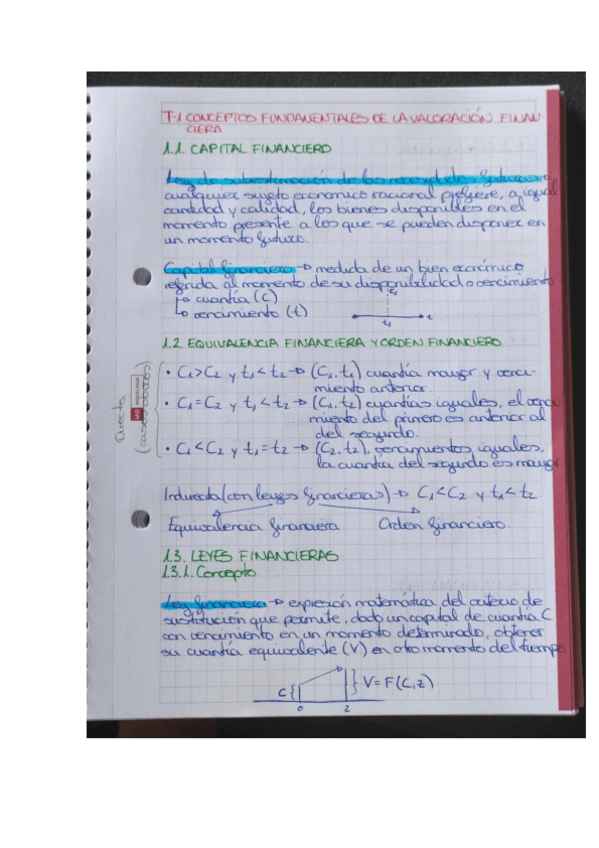 T-1 CONCEPTOS FUNDAMENTALES DE LA VALORACIÓN FINAN-
CIERA
1.1. CAPITAL FINANCIERO
Ley de subestimación de las necesidades futuras:
cualquier sujeto económico racional prefiere, a igual
cantidad y calidad, los bienes disponibles en el
momento presente a los que se pueden disponer en
un momento futuro.
Capital financiero → medida de un bien económico
referida al momento de su disponibilidad o vencimiento
↳ cuantía (C)
↳ vencimiento (t)
C₁
t₁ t
1.2 EQUIVALENCIA FINANCIERA Y ORDEN FINANCIERO
Directa
(casos obvios)
• C₁>C₂ y t₁<t₂ → (C₁, t₁) cuantía mayor y venci-
miento anterior.
• C₁=C₂ y t₁<t₂ → (C₁, t₂) cuantías iguales, el venci-
miento del primero es anterior al
del segundo.
• C₁<C₂ y t₁=t₂ → (C₂, t₂), vencimientos iguales,
la cuantía del segundo es mayor.
Inducida (con leyes financieras) → C₁<C₂ y t₁<t₂
Equivalencia financiera Orden financiero.
1.3. LEYES FINANCIERAS
1.3.1. Concepto
Ley financiera → expresión matemática del criterio de
sustitución que permite, dado un capital de cuantía C
con vencimiento en un momento determinado, obtener
su cuantía equivalente (V) en otro momento del tiempo
C { } V = F(C,z)
0 z